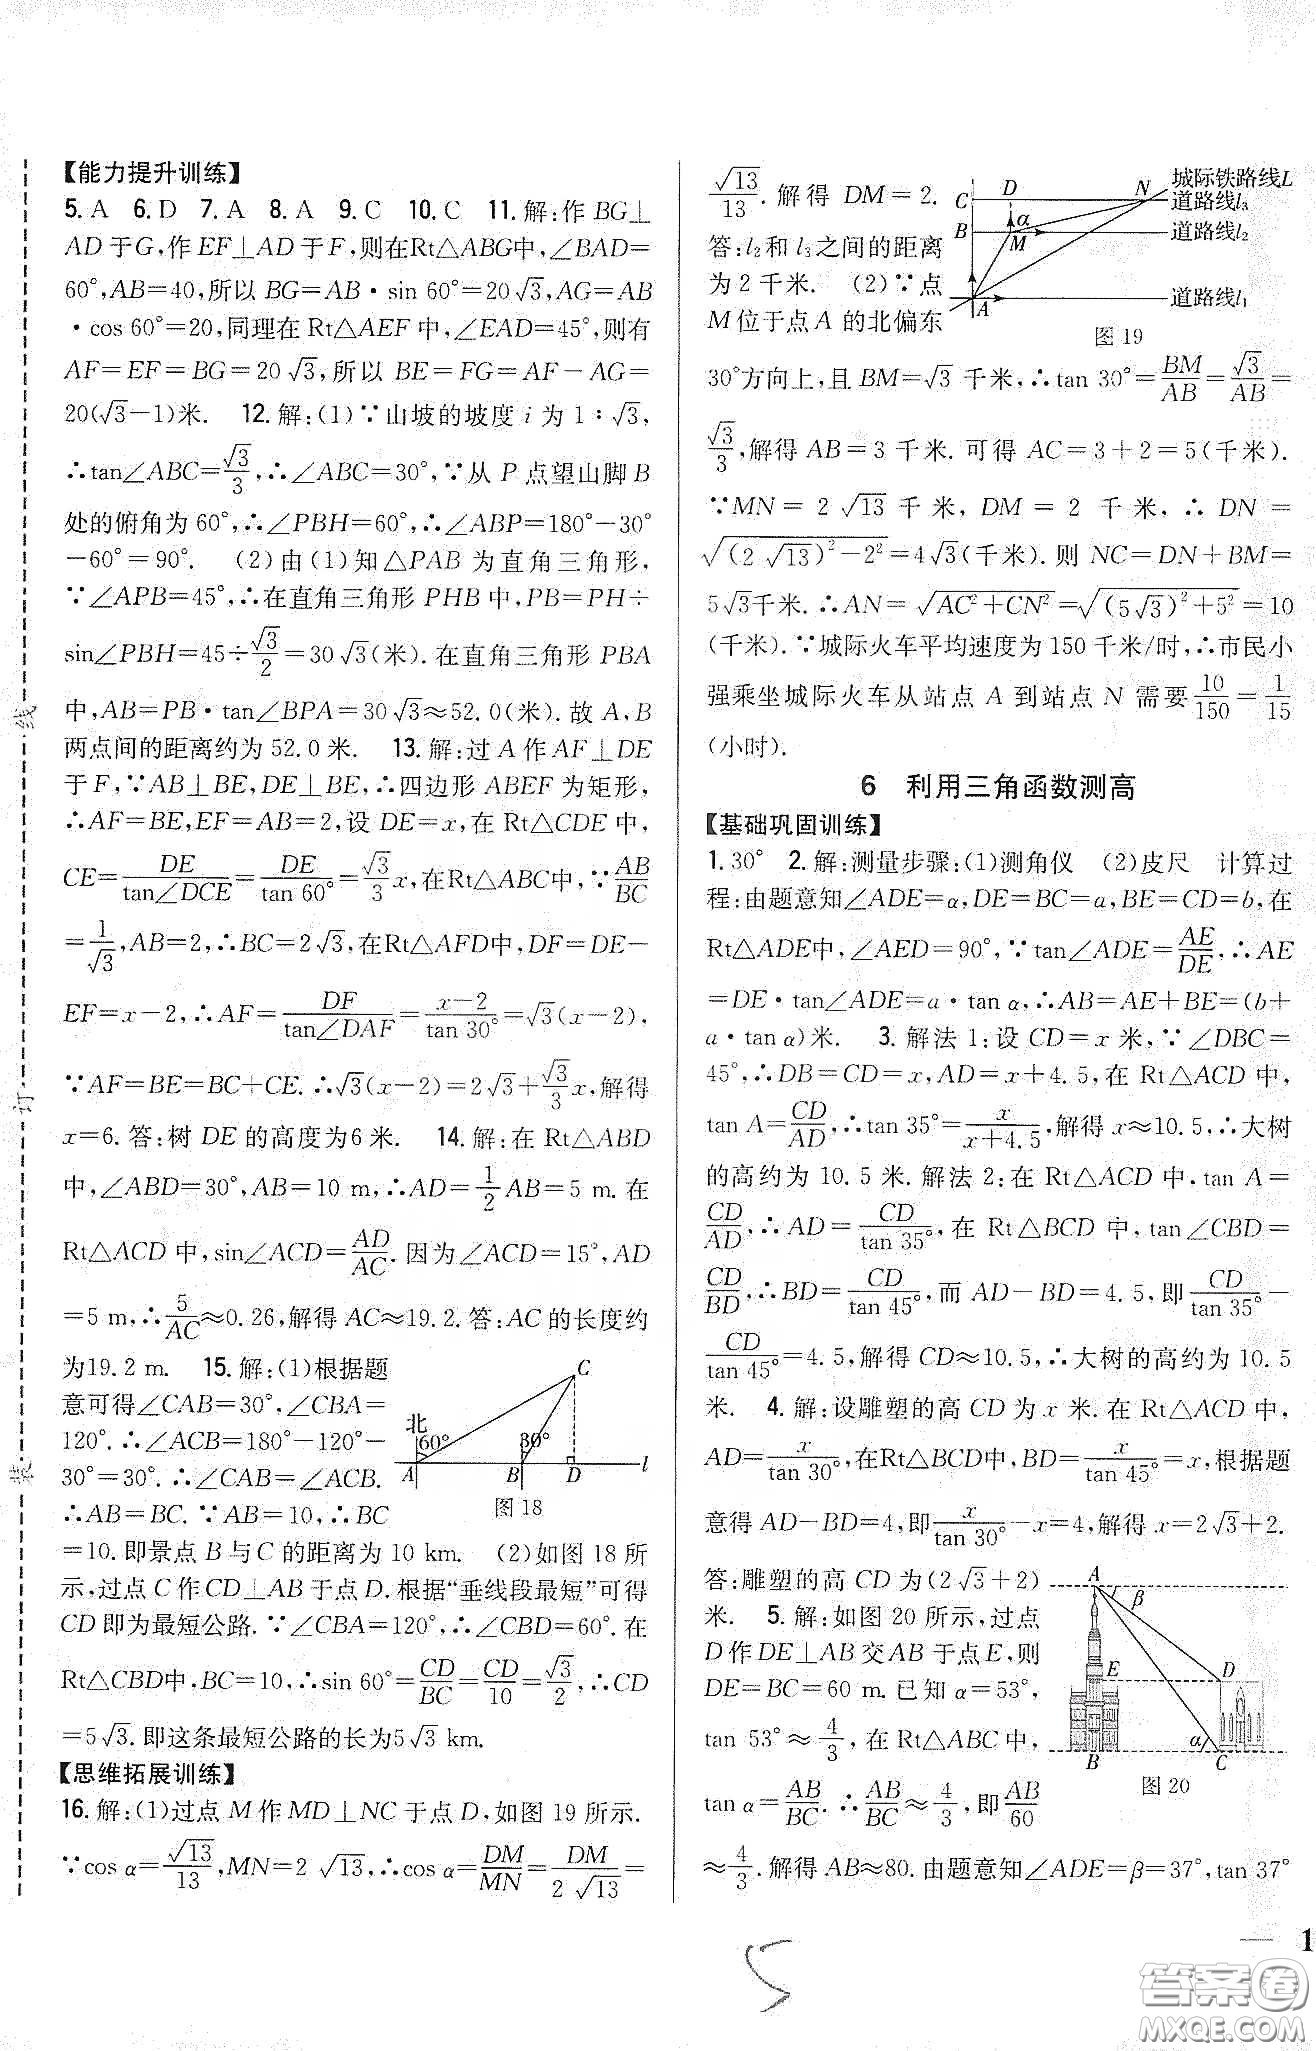 【能力提升训练】
5. A 6. D 7. A 8. A 9. C 10. C 11. 解:作 BG⊥
AD于G,作 EF⊥AD于F,则在Rt△ABG中,∠BAD=
60°,AB=40,所以 BG=AB·sin 60°=20√3,AG=AB
·cos 60°=20,同理在 Rt△AEF 中,∠EAD=45°,则有
AF=EF=BG=20√3,所以 BE=FG=AF-AG=
20(√3-1)米. 12. 解:(1)∵山坡的坡度 i 为 1∶√3,
∴tan∠ABC=√3/3,∴∠ABC=30°,∵从 P 点望山脚 B
处的俯角为 60°,∴∠PBH=60°,∴∠ABP=180°-30°
-60°=90°. (2)由(1)知△PAB 为直角三角形,
∵∠APB=45°,∴在直角三角形 PHB 中,PB=PH÷
sin∠PBH=45÷√3/2=30√3(米). 在直角三角形 PBA
中,AB=PB·tan∠BPA=30√3≈52.0(米). 故 A,B
两点间的距离约为 52.0 米. 13. 解:过 A 作 AF⊥DE
于 F,∵AB⊥BE,DE⊥BE,∴四边形 ABEF 为矩形,
∴AF=BE,EF=AB=2,设 DE=x,在 Rt△CDE 中,
CE=DE/tan∠DCE=DE/tan 60°=√3/3 x,在Rt△ABC中,∵AB/BC
=1/√3,AB=2,∴BC=2√3,在Rt△AFD中,DF=DE-
EF=x-2,∴AF=DF/tan∠DAF=x-2/tan 30°=√3(x-2),
∵AF=BE=BC+CE. ∴√3(x-2)=2√3+√3/3 x,解得
x=6. 答:树 DE 的高度为6 米. 14. 解:在 Rt△ABD
中,∠ABD=30°,AB=10 m,∴AD=1/2 AB=5 m. 在
Rt△ACD 中,sin∠ACD=AD/AC. 因为∠ACD=15°,AD
=5 m,∴5/AC≈0.26,解得 AC≈19.2. 答:AC 的长度约
为19.2 m. 15. 解:(1)根据题
意可得∠CAB=30°,∠CBA=
120°. ∴∠ACB=180°-120°-
30°=30°. ∴∠CAB=∠ACB.
∴AB=BC. ∵AB=10,∴BC
C
北
60° 30°
A B D l
图 18
=10. 即景点 B 与 C 的距离为 10 km. (2)如图 18 所
示,过点 C 作 CD⊥AB 于点 D. 根据“垂线段最短”可得
CD 即为最短公路. ∵∠CBA=120°,∴∠CBD=60°. 在
Rt△CBD中,BC=10,∴sin 60°=CD/BC=CD/10=√3/2,∴CD
=5√3. 即这条最短公路的长为5√3 km.
【思维拓展训练】
16. 解:(1)过点 M 作 MD⊥NC 于点 D,如图 19 所示.
∵cos α=√13/13,MN=2√13,∴cos α=DM/MN=DM/2√13=
√13/13. 解得 DM=2.
答:l2和 l3之间的距离
为 2 千米. (2)∵点
M 位于点 A 的北偏东
C D N 城际铁路线L
道路线l3
α
B M 道路线l2
A 道路线l1
图 19
30°方向上,且 BM=√3 千米,∴tan 30°=BM/AB=√3/AB=
√3/3,解得 AB=3 千米. 可得 AC=3+2=5(千米).
∵MN=2√13 千米,DM=2 千米,∴DN=
√((2√13)²-2²)=4√3(千米). 则 NC=DN+BM=
5√3千米. ∴AN=√(AC²+CN²)=√((5√3)²+5²)=10
(千米). ∵城际火车平均速度为 150 千米/时,∴市民小
强乘坐城际火车从站点 A 到站点 N 需要10/150=1/15
(小时).
6 利用三角函数测高
【基础巩固训练】
1. 30° 2. 解:测量步骤:(1)测角仪 (2)皮尺 计算过
程:由题意知∠ADE=α,DE=BC=a,BE=CD=b,在
Rt△ADE中,∠AED=90°,∵tan∠ADE=AE/DE,∴AE
=DE·tan∠ADE=a·tan α,∴AB=AE+BE=(b+
a·tan α)米. 3. 解法 1:设 CD=x 米,∵∠DBC=
45°,∴DB=CD=x,AD=x+4.5,在 Rt△ACD 中,
tan A=CD/AD,∴tan 35°=x/x+4.5,解得 x≈10.5,∴大树
的高约为 10.5 米. 解法 2:在 Rt△ACD 中,tan A=
CD/AD,∴AD=CD/tan 35°,在 Rt△BCD 中,tan∠CBD=
CD/BD,∴BD=CD/tan 45°,而 AD-BD=4.5,即CD/tan 35°-
CD/tan 45°=4.5,解得 CD≈10.5,∴大树的高约为 10.5
米. 4. 解:设雕塑的高 CD 为 x 米. 在 Rt△ACD 中,
AD=x/tan 30°,在Rt△BCD中,BD=x/tan 45°=x,根据题
意得 AD-BD=4,即x/tan 30°-x=4,解得 x=2√3+2.
答:雕塑的高 CD 为(2√3+2)
米. 5. 解:如图 20 所示,过点
D 作 DE⊥AB 交 AB 于点 E,则
DE=BC=60 m. 已知 α=53°,
tan 53°≈4/3,在 Rt△ABC 中,
tan α=AB/BC. ∴AB/BC≈4/3,即AB/60
A
β
E D
α
B C
图 20
≈4/3. 解得 AB≈80. 由题意知∠ADE=β=37°,tan 37°
装 订 线
5
— 1
答案卷
MXQE.COM